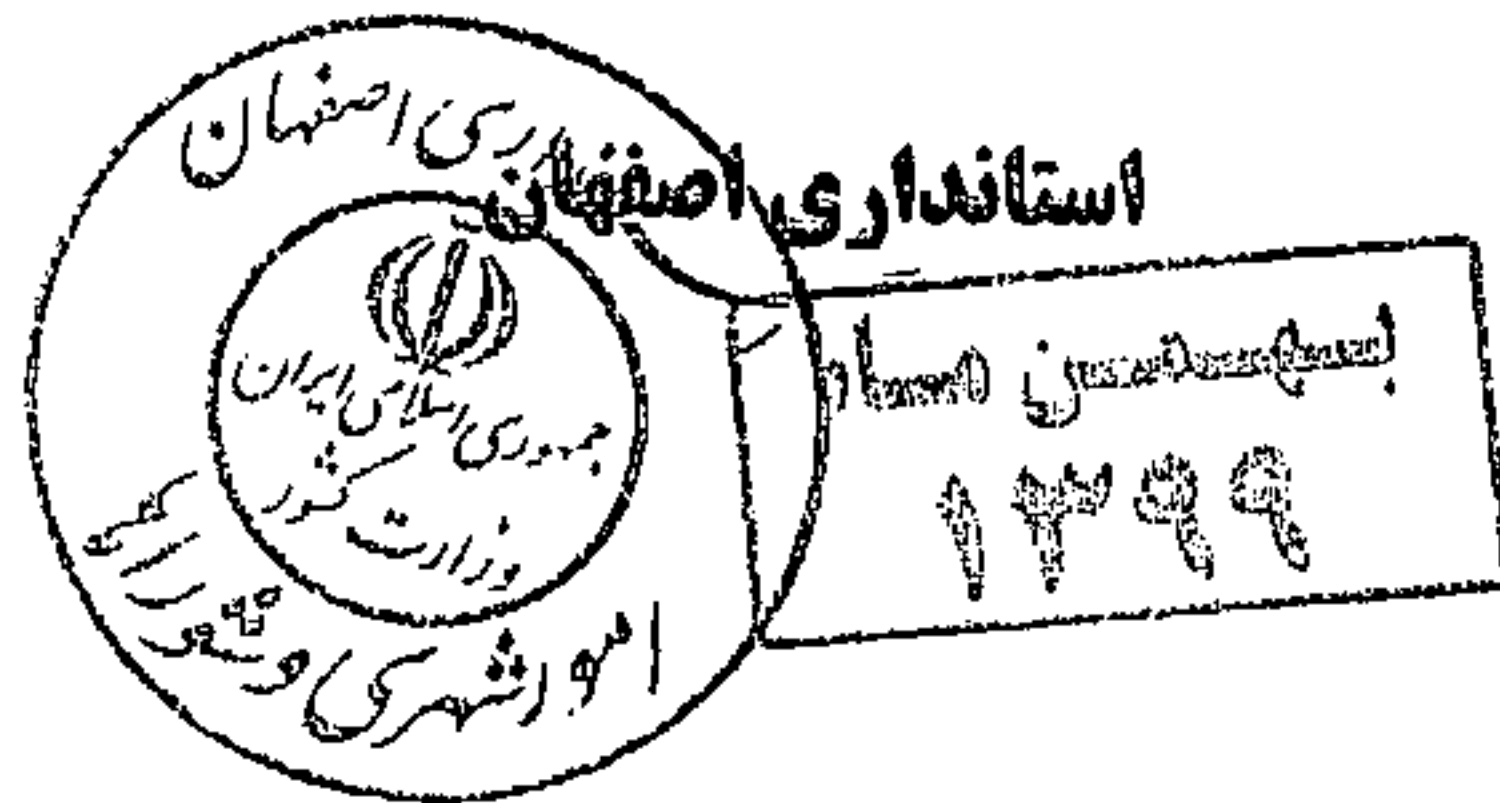 استانداری اصفهان
بهمن ماه
۱۳۹۹
استانداری اصفهان
جمهوری اسلامی ایران
وزارت کشور
امور شهری و شوراها